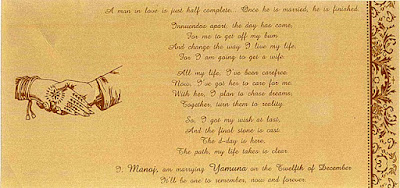 A man in love is just half complete... Once he is married, he is finished.
Innuendos apart, the day has come,
For me to get off my bum.
And change the way I live my life,
For I am going to get a wife.
All my life, I've been carefree.
Now, I've got her to care for me.
With her, I plan to chase dreams,
Together, turn them to reality.
So, I got my wish at last,
And the final stone is cast.
The d-day is here,
The path, my life takes is clear.
I, Manoj, am marrying Yamuna on the Twelfth of December
It'll be one to remember, now and forever.